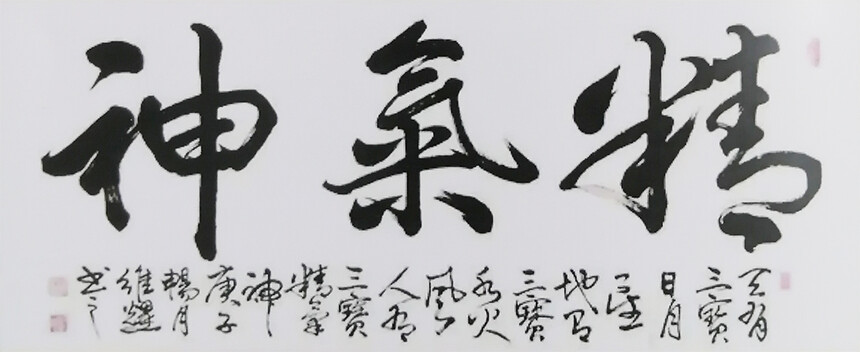 精氣神
天有
三寶
日月
星
地有
三寶
水火
風
人有
三寶
精氣
神
庚子
暢月
維耀
書之